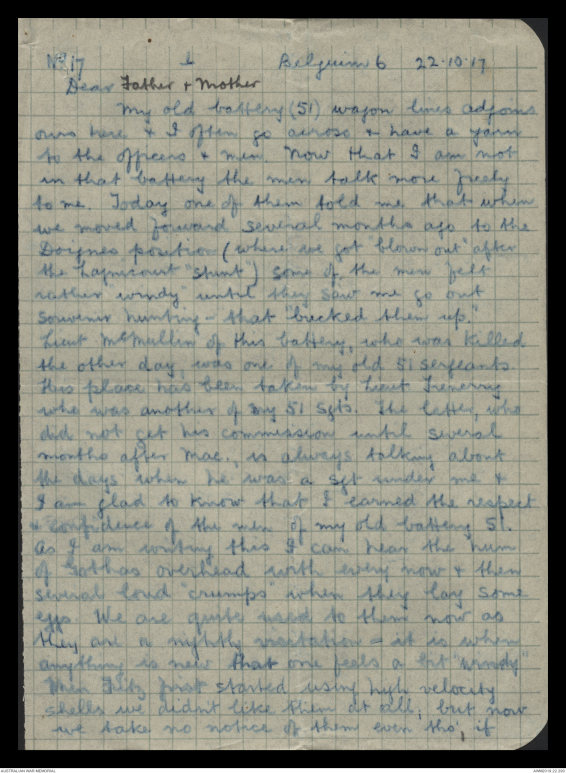 No 17 1 Belguim 6 22.10.17
Dear Father & Mother
My old battery (51) wagon lines adjoins
ours here & I often go across & have a yarn
to the officers & men. Now that I am not
in that battery the men talk more freely
to me. Today one of them told me that when
we moved forward several months ago to the
Doignes position (where we got "blown out" after
the Lagnicourt "stunt") some of the men felt
rather "windy" until they saw me go out
souvenir hunting - that "bucked them up."
Lieut McMullin of this battery, who was killed
the other day, was one of my old 51 sergeants.
His place has been taken by Lieut Trenerry
who was another of my 51 Sgts. The latter, who
did not get his commission until several
months after Mac., is always talking about
the days when he was a sgt under me &
I am glad to know that I earned the respect
& confidence of the men of my old battery 51.
As I am writing this I can hear the hum
of Gothas overhead with every now & then
several loud "crumps" when they lay some
eggs. We are quite used to them now as
they are a nightly visitation - it is when
anything is new that one feels a bit "windy"
When Fritz first started using high velocity
shells we didn't like them at all, but now
we take no notice of them even tho', if
AUSTRALIAN WAR MEMORIAL